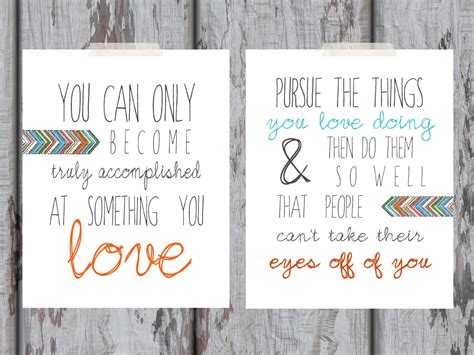 YOU CAN ONLY
BECOME
truly accomplished
AT SOMETHING YOU
love
PURSUE THE THINGS
you love doing
& THEN DO THEM
SO WELL
THAT PEOPLE
can't take their
eyes off of you